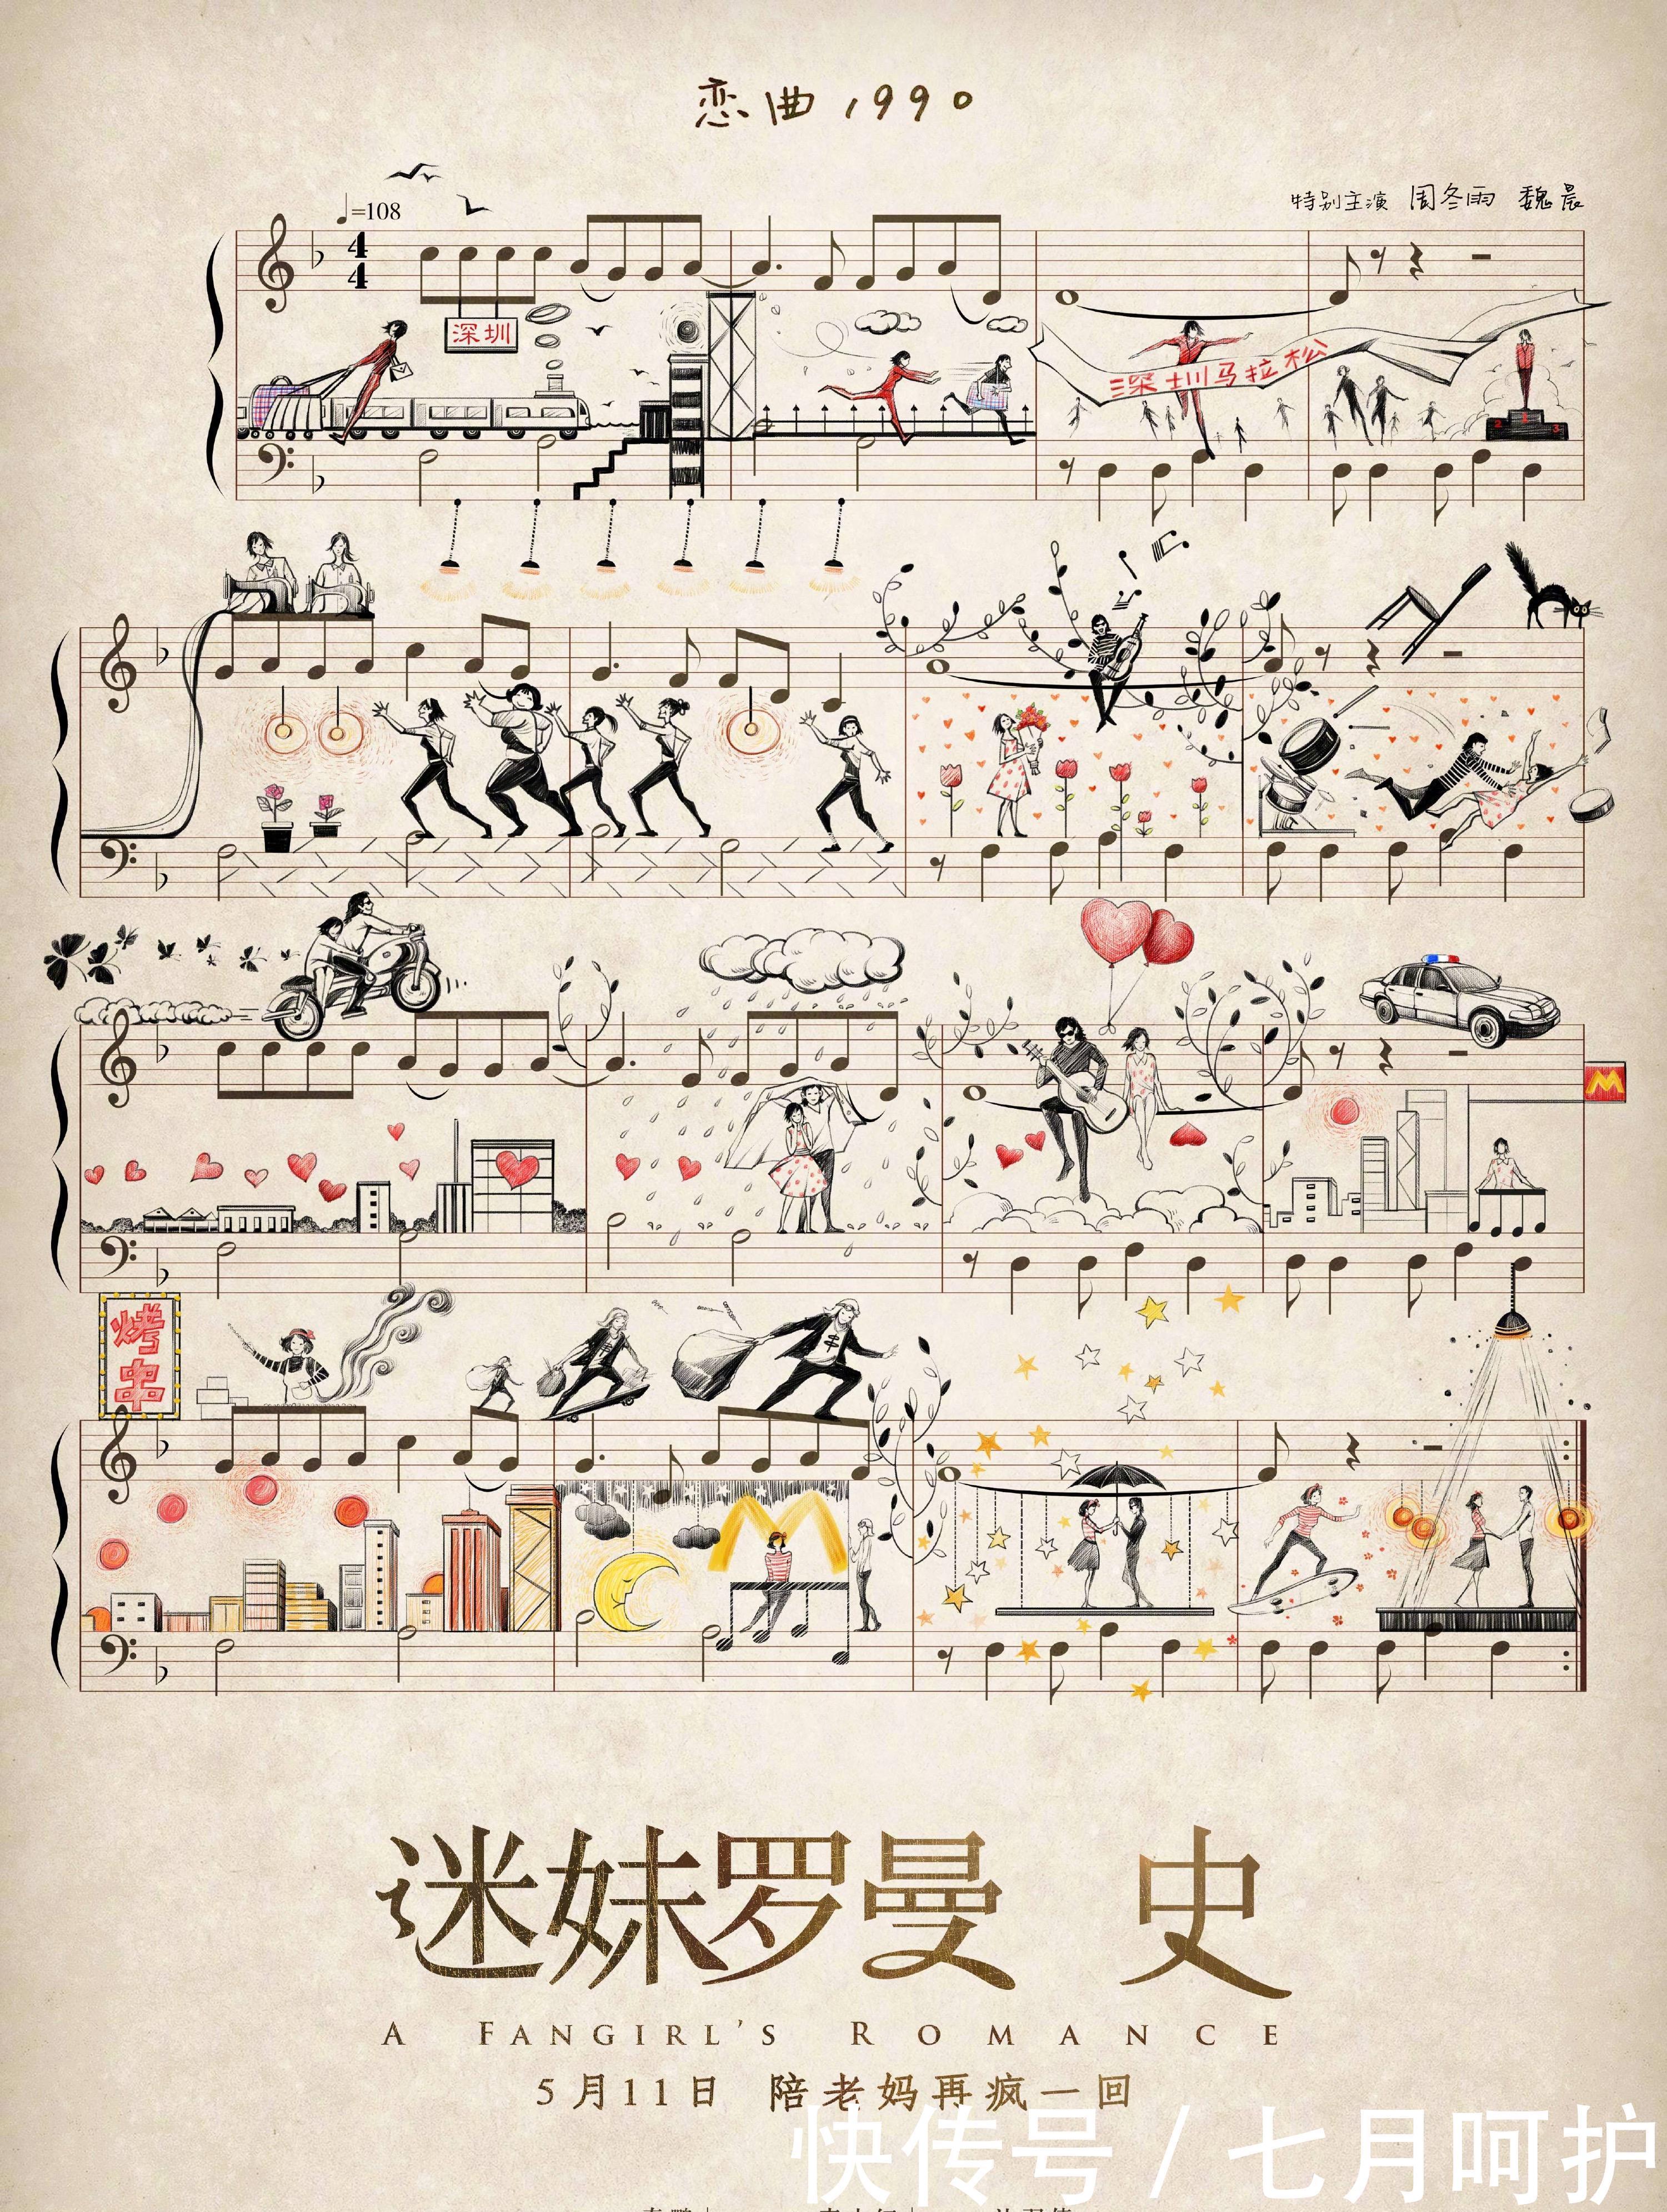 恋曲1990
特别主演 周冬雨 魏晨
♩=108
4
4
深圳
深圳马拉松
2 1 3
M
烤串
迷妹罗曼 史
A FANGIRL'S ROMANCE
5月11日 陪老妈再疯一回
快传号 / 七月呵护